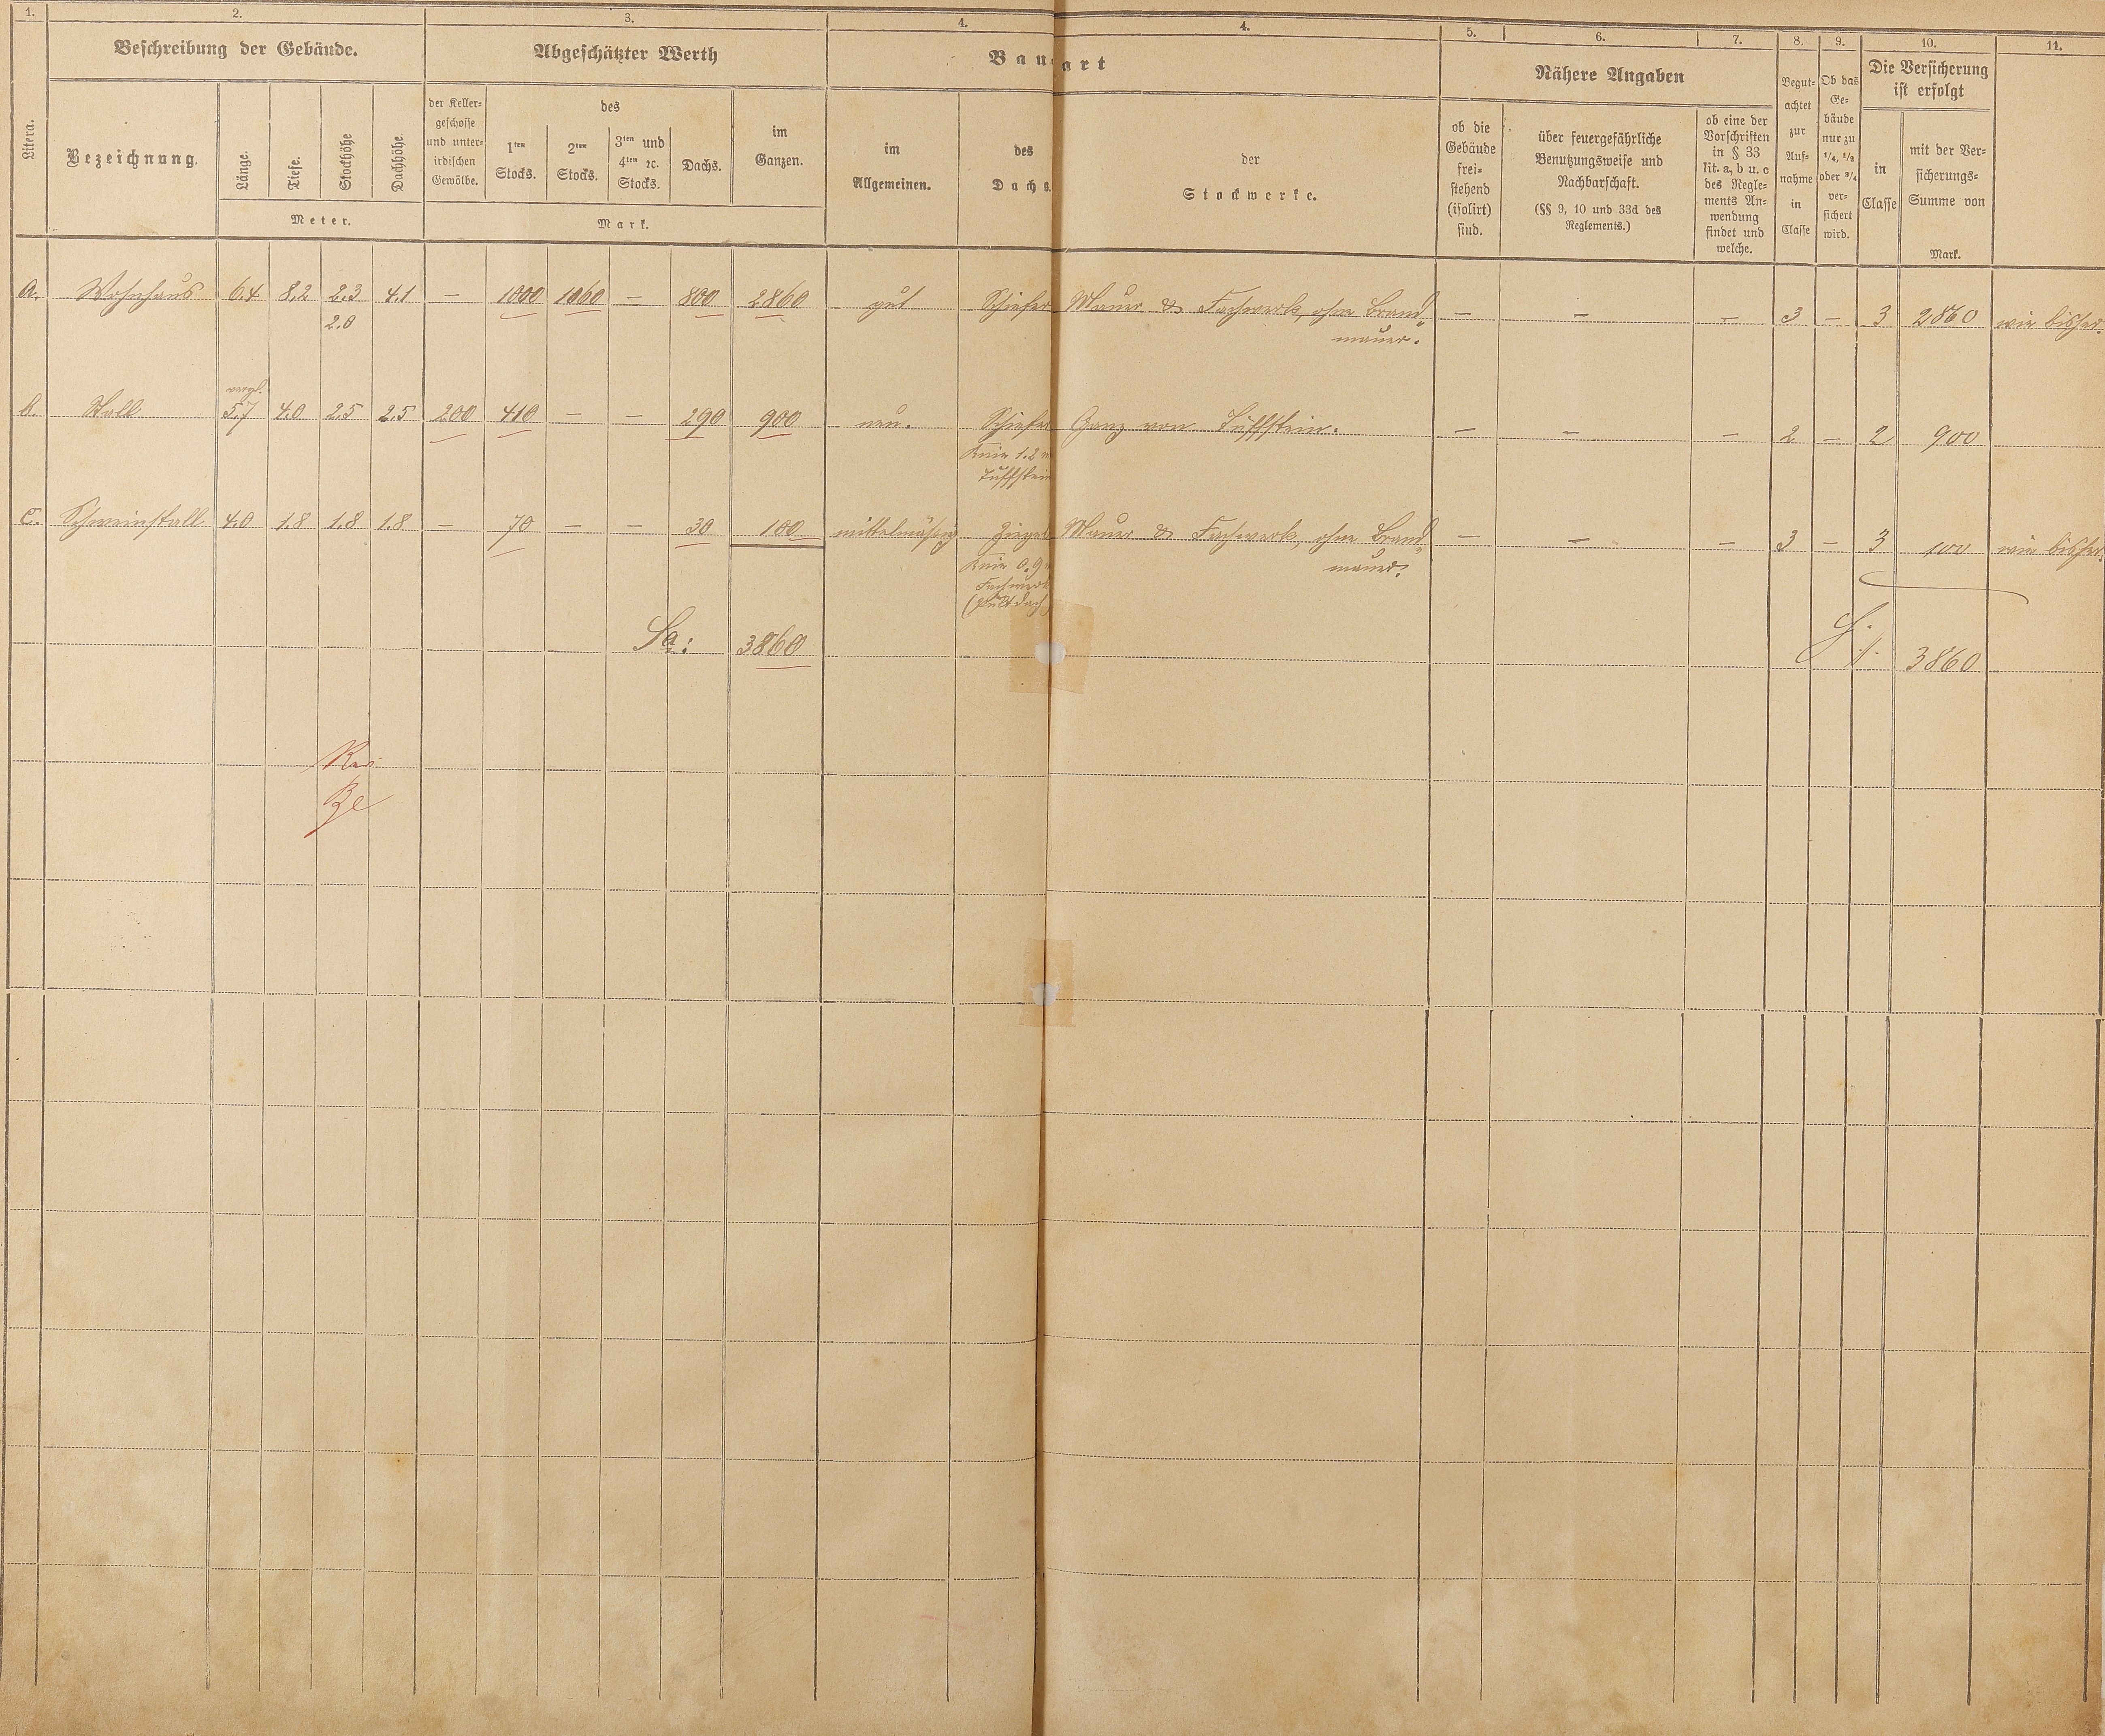 1. 2. 3. 4. 4. 5. 6. 7. 8. 9. 10. 11.
Litera.
Beschreibung der Gebäude.
Bezeichnung.
Länge.
Tiefe.
Stockhöhe
Dachhöhe.
Meter.
Abgeschätzter Werth
der Keller=
geschosse
und unter=
irdischen
Gewölbe.
des
1ten
Stocks.
2ten
Stocks.
3ten und
4ten ꝛc.
Stocks.
Dachs.
im
Ganzen.
Mark.
Bauart
im
Allgemeinen.
des
Dachs.
der
Stockwerke.
Nähere Angaben
ob die
Gebäude
frei=
stehend
(isolirt)
sind.
über feuergefährliche
Benutzungsweise und
Nachbarschaft.
(§§ 9, 10 und 33d des
Reglements.)
ob eine der
Vorschriften
in § 33
lit. a, b u. c
des Regle=
ments An=
wendung
findet und
welche.
Begut=
achtet
zur
Auf=
nahme
in
Classe
Ob das
Ge=
bäude
nur zu
1/4, 1/2
oder 3/4
ver=
sichert
wird.
Die Versicherung
ist erfolgt
in
Classe
mit der Ver=
sicherungs=
Summe von
Mark.
a. Wohnhaus 6.4 8.2 2.3 4.1 — 1000 1060 — 800 2860 gut Schiefer Mauer & Fachwerk, ohne Brand= — — — 3 — 3 2860 wie bisher.
2.0 mauer.
vergl.
b. Stall 5.7 4.0 2.5 2.5 200 410 — — 290 900 neu. Schiefer Ganz von Tuffstein. — — — 2 — 2 900
Knie 1.2 m
Tuffstein
c. Schweinstall 4.0 1.8 1.8 1.8 — 70 — — 30 100 mittelmäßig Ziegel Mauer & Fachwerk, ohne Brand= — — — 3 — 3 100 wie bisher.
Knie 0.9 mauer.
Fachwerk
(Pultdach)
Sa: 3860 3860
Rev.